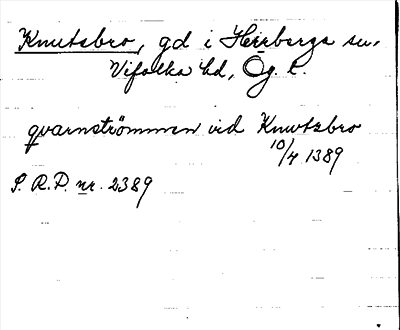 Knutsbro, gd i Herrberga sn.
Vifolka hd, Ög. l.
qvarnströmmen vid Knwtzbro
10/4 1389
S. R. P. nr. 2389